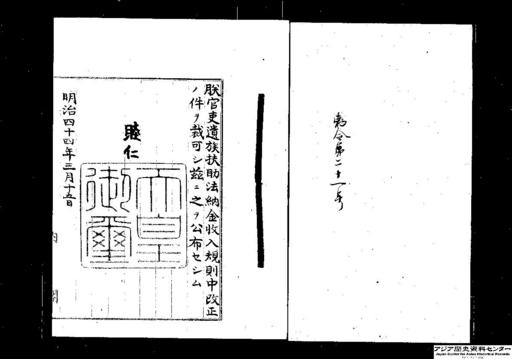 勅令第二十一号
朕官吏遺族扶助法納金収入規則中改正
ノ件ヲ裁可シ茲ニ之ヲ公布セシム
睦仁
天皇御璽
明治四十四年三月十五日
内閣
アジア歴史資料センター
Japan Center for Asian Historical Records